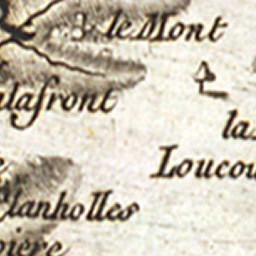 le Mont
alafront
la
Loucou
e
lanholles
piere